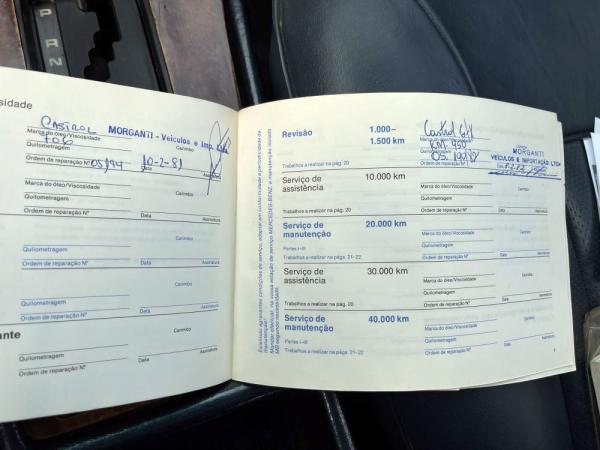 P
R
N
sidade
CASTROL
706
MORGANTI - Veículos e Imp. Ltda
Marca do óleo/Viscosidade
Carimbo
Quilometragem
Ordem de reparação Nº 05/94 10-2-81
Data
Assinatura
Marca do óleo/Viscosidade
Carimbo
Quilometragem
Ordem de reparação Nº
Data
Assinatura
Carimbo
Quilometragem
Ordem de reparação Nº
Data
Assinatura
Carimbo
Quilometragem
Ordem de reparação Nº
Data
Assinatura
ante
Carimbo
Quilometragem
Ordem de reparação Nº
Data
Assinatura
MB segundo necessidade.
Revisão
1.000–
1.500 km
Trabalhos a realizar na pág. 20
Castrol
Marca do óleo/Viscosidade
Quilometragem
KM 950
Ordem de reparação Nº
MORGANTI
VEÍCULOS E IMPORTAÇÃO LTDA
Serviço de
assistência
10.000 km
Trabalhos a realizar na pág. 20
Marca do óleo/Viscosidade
Carimbo
Quilometragem
Ordem de reparação Nº
Data
Assinatura
Serviço de
manutenção
20.000 km
Partes I–III
Trabalhos a realizar na pág. 21–22
Marca do óleo/Viscosidade
Carimbo
Quilometragem
Ordem de reparação Nº
Data
Assinatura
Serviço de
assistência
30.000 km
Trabalhos a realizar na pág. 20
Marca do óleo/Viscosidade
Carimbo
Quilometragem
Ordem de reparação Nº
Data
Assinatura
Serviço de
manutenção
40.000 km
Partes I–III
Trabalhos a realizar na pág. 21–22
Marca do óleo/Viscosidade
Carimbo
Quilometragem
Ordem de reparação Nº
Data
Assinatura